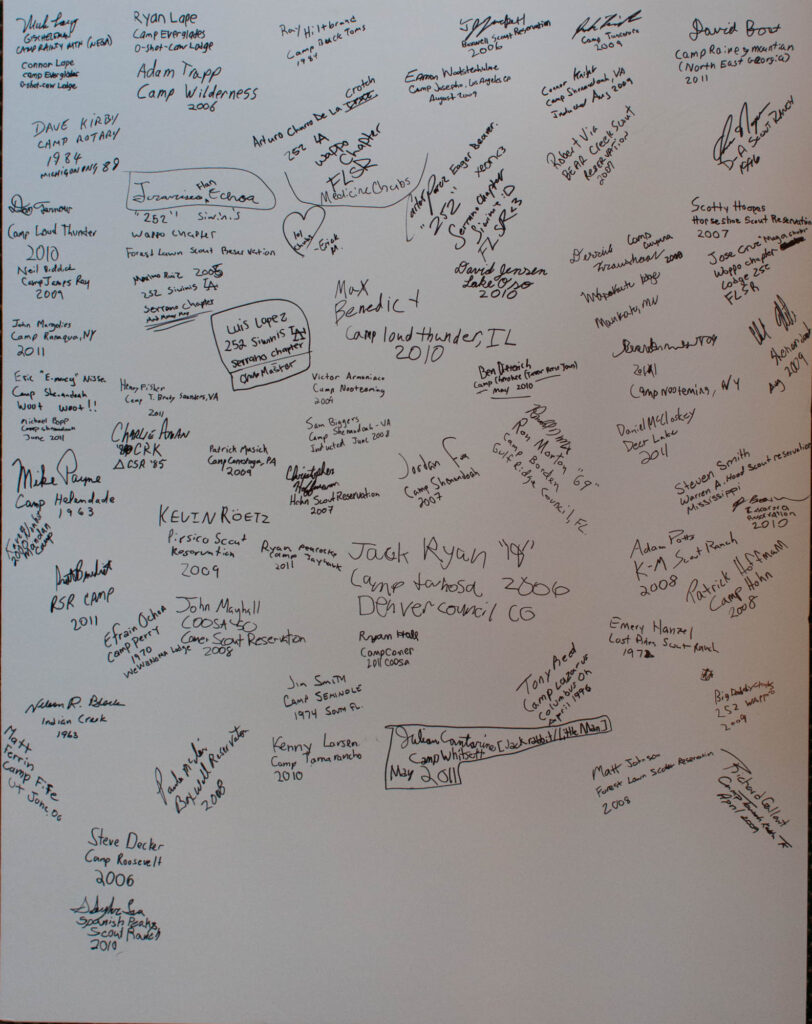 CAMP RAINEY MTN (NEGA)
Connor Lape
Camp Everglades
O-Shot-Caw Lodge
Ryan Lape
Camp Everglades
O-Shot-Caw Lodge
Adam Trapp
Camp Wilderness
2006
Ray Hiltbrand
Camp Black Toms
1984
Boxwell Scout Reservation
2006
Camp Tuscarora
2009
David Bow
Camp Rainey Mountian
(North East Georgia)
2011
Eamon
Camp Josepho, Los Angeles CA
August 2009
Conor Knight
Camp Shenandoah, VA
Inducted Aug 2009
DAVE KIRBY
CAMP ROTARY
1984
MICHIGAN ONG 88
Crotch
Arturo Charro De La
252 IA
Wappo Chapter
FLSR
Medicine Chubs
Eager Beaver
"252"
Serrano Chapter
FLSR
Robert Via
BEAR Creek Scout
RESERVATION
2007
Han
Francisco Echoa
"252"! Siwinis
Wappo Chapter
Forest Lawn Scout Reservation
Erick
M.
Scotty Hoopes
Horseshoe Scout Reservation
2007
Jose Cruz
Wappo Chapter
Lodge 252
FLSR
Camp Loud Thunder
2010
Neil Riddick
Camp James Ray
2009
Maximo Ruiz 2005
252 Siwinis IA
Serrano Chapter
David Jensen
Lake Oso
2010
Derrick Camp
2008
Wapakute Lodge
Mankato, MN
John Margolies
Camp Ranaqua, NY
2011
Luis Lopez
252 Siwinis IA
Serrano Chapter
Chub Master
Max
Benedict
Camp loud thunder, IL
2010
Shenandoah
Aug 2009
2011
Camp Nooteming, NY
Eric "E-money" Nisse
Camp Shenandoah
WOOT WOOT!!
Michael Popp
Camp Shenandoah
June 2011
Henry Fisher
Camp T. Brady Saunders, VA
2011
Victor Armaniaco
Camp Nooteming
2009
Ben Dietrich
May 2010
CHARLIE AMAN
CRK
CSR '85
Patrick Masick
Camp Conestoga, PA
2009
Sam Biggers
Camp Shenandoah - VA
Inducted June 2008
Christopher
Hoffmann
Hohn Scout Reservation
2007
Jordan Fox
Camp Shenandoah
2007
Ron Morton "69"
Camp Bordan
Gulf Ridge Council, FL
Daniel McCloskey
Deer Lake
2011
Steven Smith
Warren A. Hood Scout reservation
Mississippi
Reservation
2010
Mike Payne
Camp Helendade
1963
Camp
KEVIN ROETZ
Pirsico Scout
Reservation
2009
Ryan Peacocke
Camp Jayhawk
2011
Jack Ryan
Camp tahosa 2006
Denver council CO
Adam Potts
K-M Scout Ranch
2008
Patrick Hoffmann
Camp Hohn
2008
RSR CAMP
2011
Efrain Ochoa
Camp Perry
1970
WeWaNoMa Lodge
John Mayhall
COOSA 50
Comer Scout Reservation
2008
Ryan Hall
Camp Comer
2011 COOSA
Emery Hanzel
Lost Pines Scout Ranch
1972
Nelson R. Block
Indian Creek
1963
Jim Smith
Camp SEMINOLE
1974 SOUTH FL.
Tony Reed
Camp Lazarus
Columbus OH
April 1996
252 Wappo
2009
Matt
Perrin
Camp Fife
UT June 06
Boxwell Reservation
2008
Kenny Larsen
Camp Tamarancho
2010
Julian Cantarino [Jackrabbit/Little Man]
Camp Whitsett
May 2011
Matt Johnson
Forest Lawn Scouter Reservation
2008
Richard Gallant
April 2009
Steve Decker
Camp Roosevelt
2006
Spanish Peaks
Scout Ranch
2010